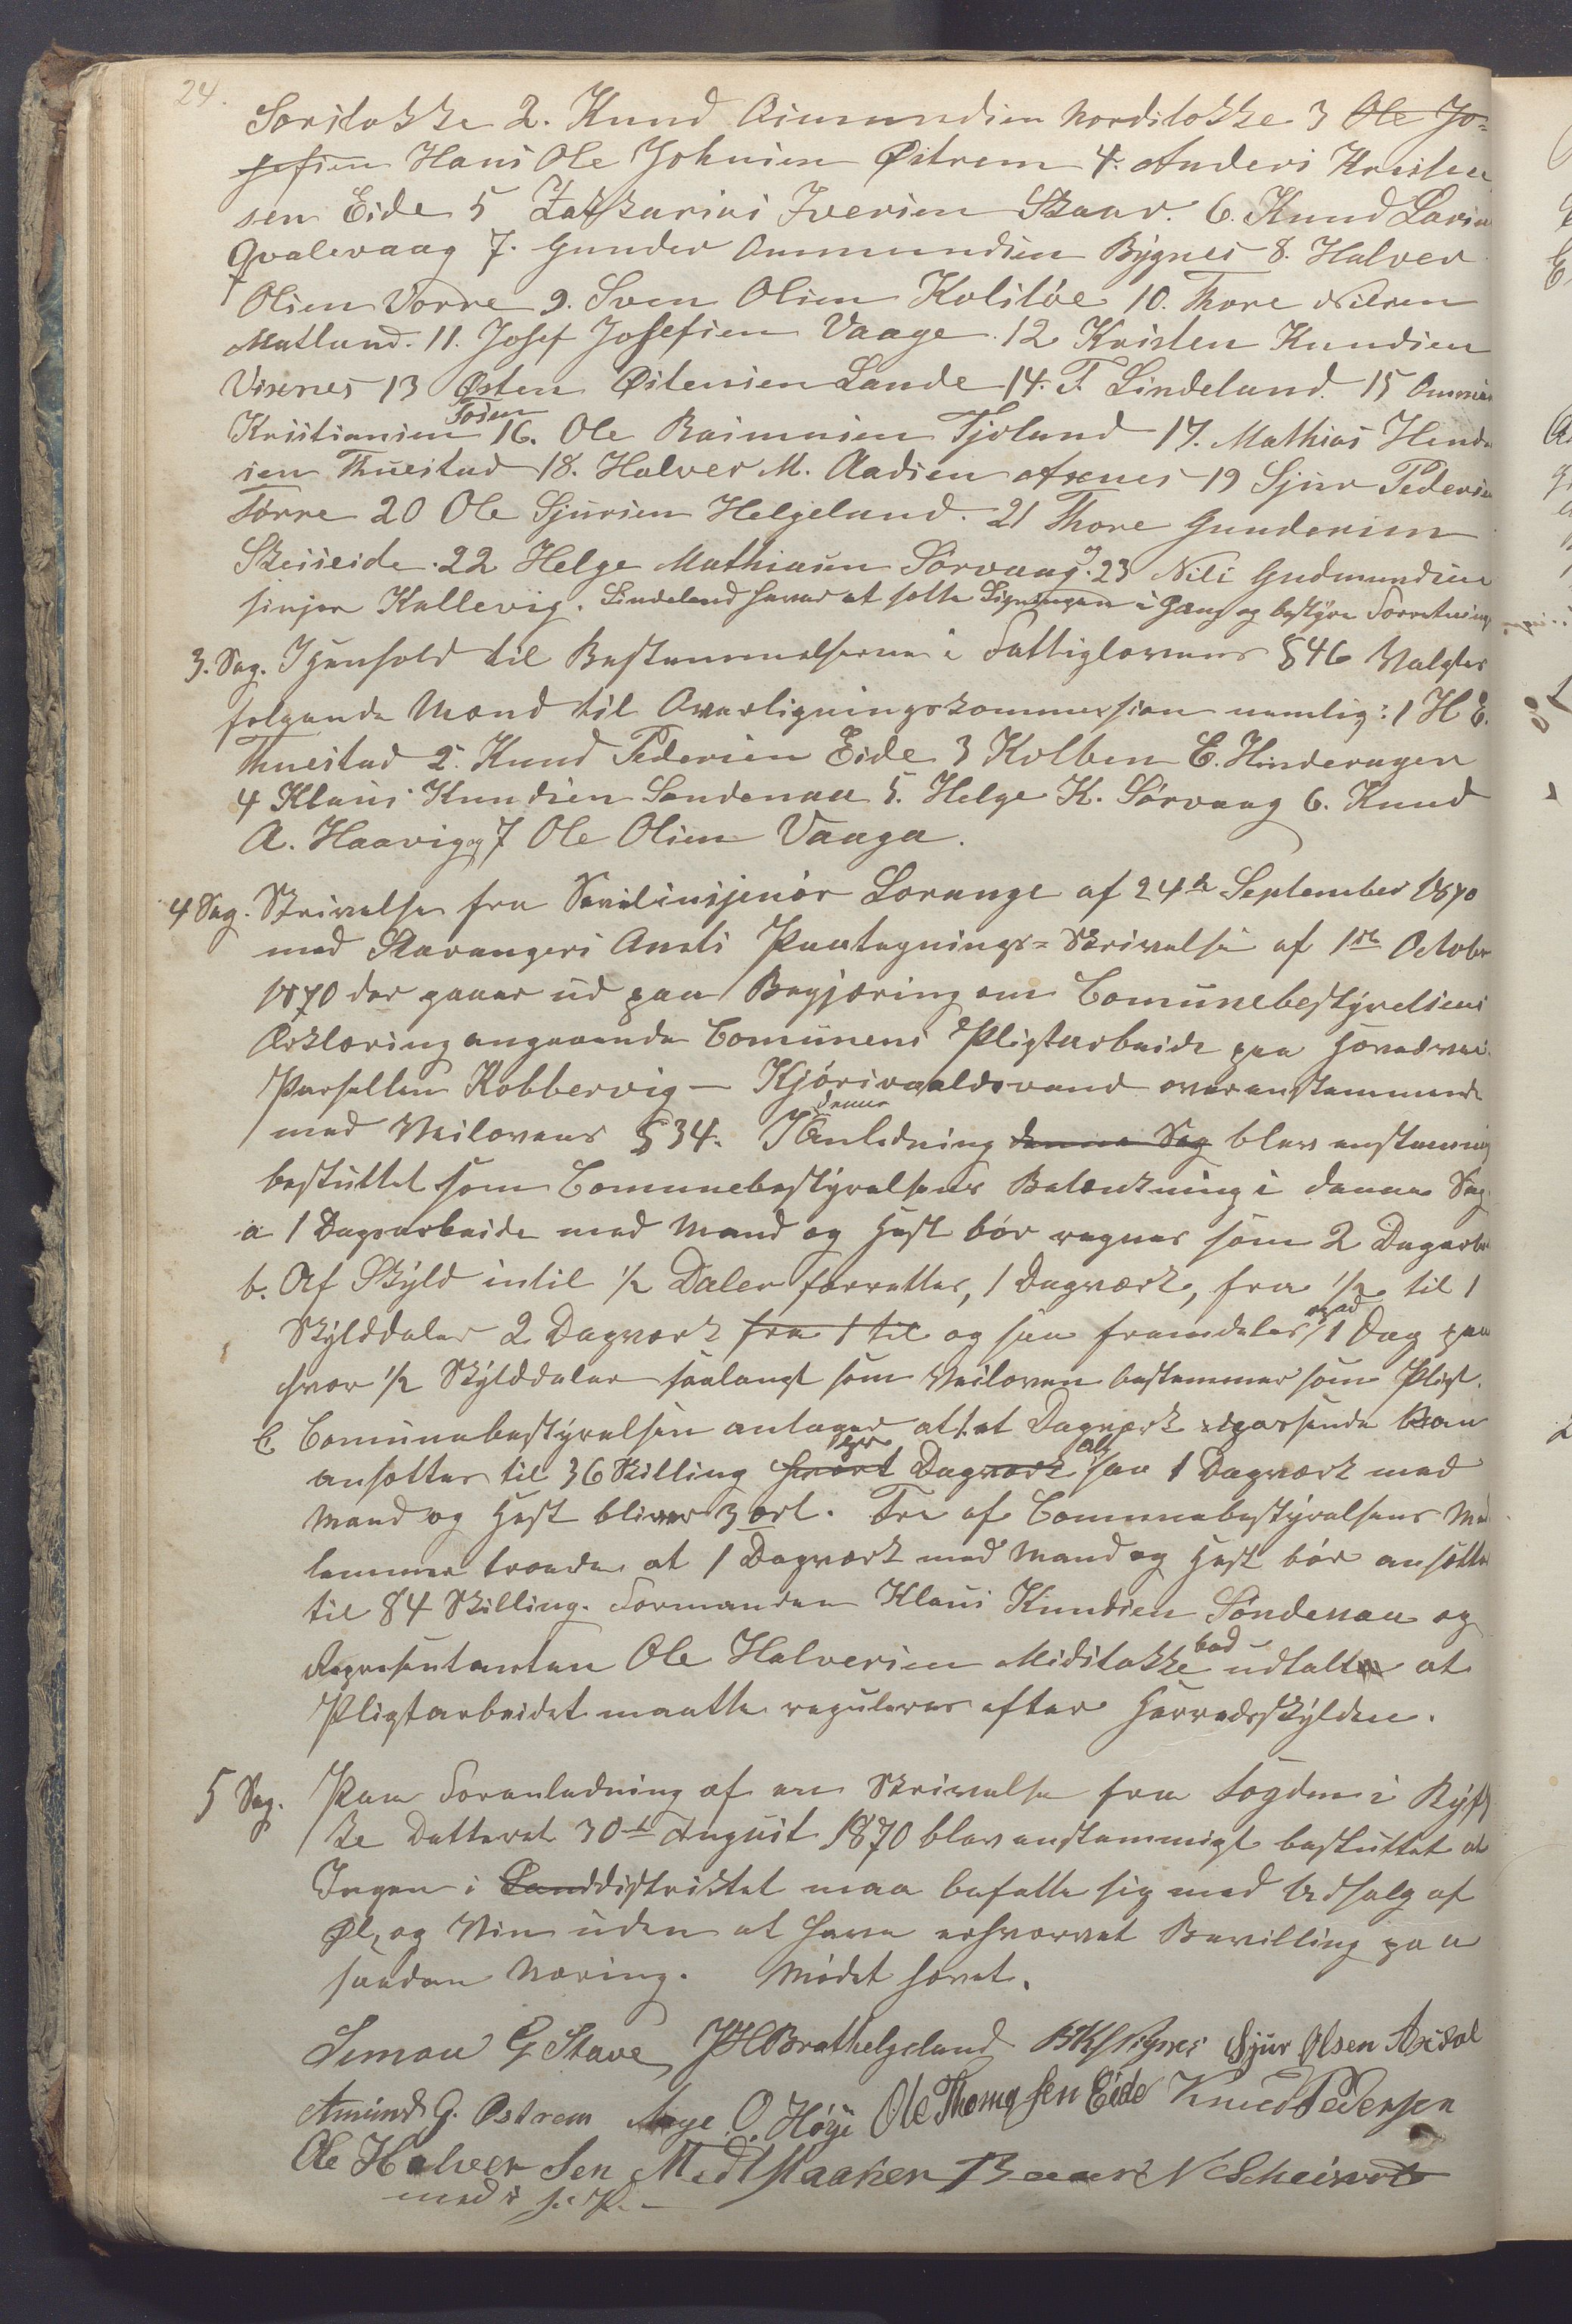 24.
Sørstokke 2. Knud Aimundsen Nordstokke 3 Ole Jo-
sefsen Hans Ole Johnsen Østrem 4. Anders Kristen
sen Eide 5 Zakkarias Iversen Skaar. 6. Knud Larsen
Qvalevaag 7. Gunder Ommundsen Bygnes 8. Halvor
Olsen Vorre 9. Sven Olsen Kolstøe 10. Thore Nilsen
Matland. 11. Josef Josefsen Vaage. 12 Kristen Knudsen
Visnes 13 Østen Østensen Lande 14. T. Lindeland. 15
Kristiansen Tosen 16. Ole Rasmusen Tjoland 17. Mathias Hend
sen Thuestad 18. Halvor M. Aadsen Axnes 19 Sjur Pedersen
Tørre 20 Ole Sjursen Helgeland. 21 Thore Gundersen
Skeiseide. 22 Helge Mathiasen Sørvaag og 23 Nils Gudmundsen
sinjen Kallevig. Lindeland haver at sette Ligningen i Gang og bestyre Forretning
3. Sag. I Henhold til Bestemmelserne i Fattiglovens §46 Valgtes
følgende Mænd til Overligningskommersion nemlig: 1 H E.
Thuestad 2. Knud Pedersen Eide 3 Kolben E. Hinderager
4 Klaus Knudsen Søndenaa 5. Helge K. Sørvaag 6. Knud
A. Haavig og 7 Ole Olsen Vaaga.
4 Sag. Skrivelse fra Sivilinsjenør Lorange af 24de September 1870
med Stavangers Amts Paategnings-Skrivelse af 1ste October
1870 der gaaer ud paa Begjæring om Comunebestyrelsens
Erklæring angaaende Comunens Pligtarbeide paa Hovedvei
Parsellen Kobbervig - Kjørsvaldsvand overenstemmende
med Veilovens §34. I denne Anledning denne Sag blev enstemmig
besluttet som Comunebestyrelsens Betænkning i denne Sag
a 1 Dagsarbeide med Mand og Hest bør regnes som 2 Dagarb
b. Af Skyld intil ½ Daler forrettes, 1 Dagværk, fra ½ til 1
Skylddaler 2 Dagværk fra 1 til og saa fremdeles med 1 Dag paa
hver ½ Skylddaler saalangt som Veiloven bestemmer som Pligt.
C Comunebestyrelsen antager at et Dagværk udpassende kan
ansættes til 36 Skilling pr hvert Dagværk altsaa 1 Dagværk med
Mand og Hest bliver 3 ort. Tre af Comunebestyrelsens Med
lemmer troede at 1 Dagværk med Mand og Hest bør ansætte
til 84 Skilling. Formanden Klaus Knudsen Søndenaa og
Representanten Ole Halversen Midstokke bad udtalt at
Pligtarbeidet maatte reguleres efter Herredsskylden.
5 Sag. Paa Foranledning af en Skrivelse fra Fogden i Ryfy
ke Datteret 30te August 1870 blev enstemmigt besluttet at
Ingen i Landdistriktet maa befatte sig med Udsalg af
Øl, og Vin uden at have erhvervet Bevilling paa
saadan Næring. Mødet hævet.
Simon G Stave JHBrathelgeland Sjur Olsen Axdal
Amund G. Østrem Aage O. Høye Ole Thomassen Eide Knud Pedersen
Ole Halversen Medstaaken
med i. P.